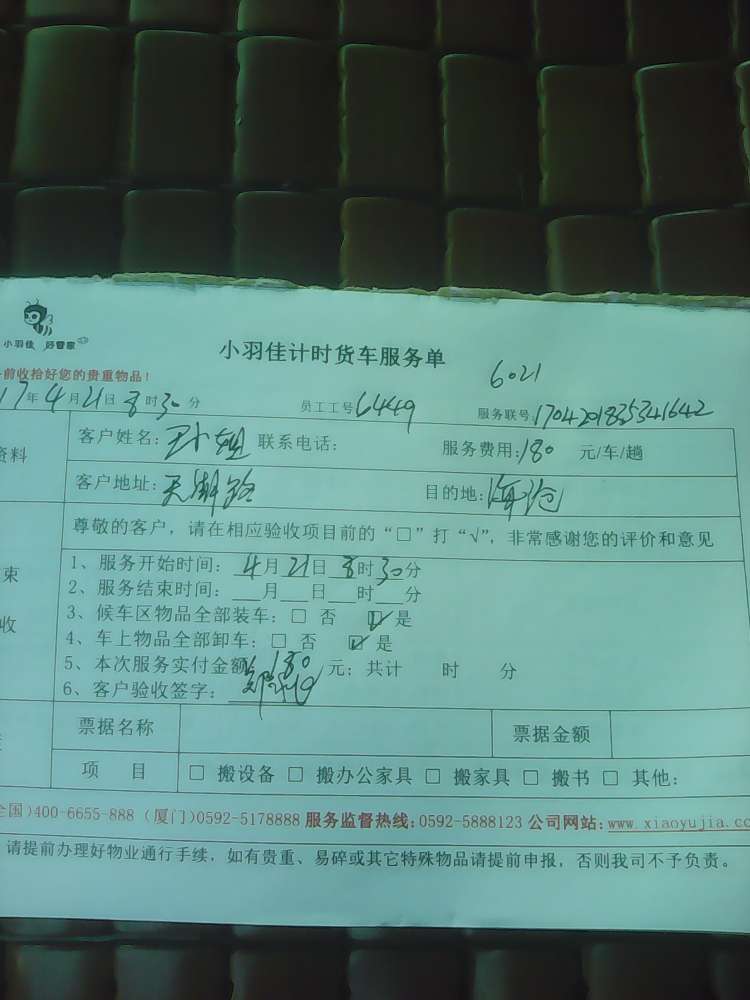 小羽佳 好管家
小羽佳计时货车服务单
6021
前收拾好您的贵重物品!
17年4月21日8时30分 员工工号6449 服务联号:1704201835341642
资料
客户姓名: 王小姐 联系电话: 服务费用:180 元/车/趟
客户地址:天湖路 目的地:海沧
尊敬的客户,请在相应验收项目前的“□”打“√”,非常感谢您的评价和意见
束
收
1、服务开始时间: 4月21日8时30分
2、服务结束时间: 月 日 时 分
3、候车区物品全部装车:□ 否 ☑是
4、车上物品全部卸车:□ 否 ☑是
5、本次服务实付金额180元;共计 时 分
6、客户验收签字:
票据名称 票据金额
项 目 □ 搬设备 □ 搬办公家具 □ 搬家具 □ 搬书 □ 其他:
全国)400-6655-888 (厦门)0592-5178888 服务监督热线:0592-5888123 公司网站:www.xiaoyujia.co
请提前办理好物业通行手续,如有贵重、易碎或其它特殊物品请提前申报,否则我司不予负责。